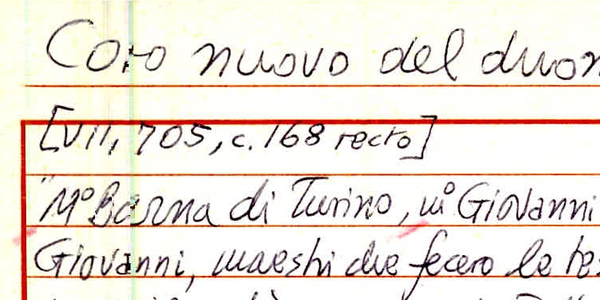 Coro nuovo del duom
[VII, 705, c. 168 recto]
"M° Barna di Turino, m° Giovanni
Giovanni, maestri che fecero le tes